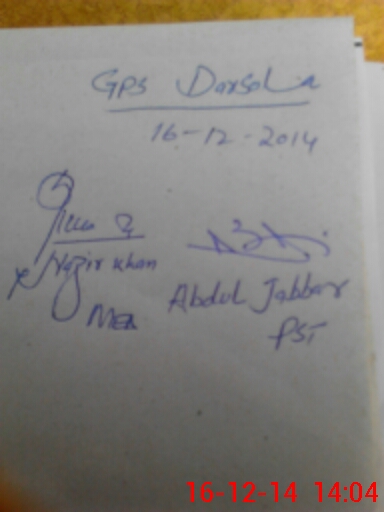 GPS Darsola
16-12-2014
Nazir Khan
Abdul Jabbar
PST
16-12-14 14:04